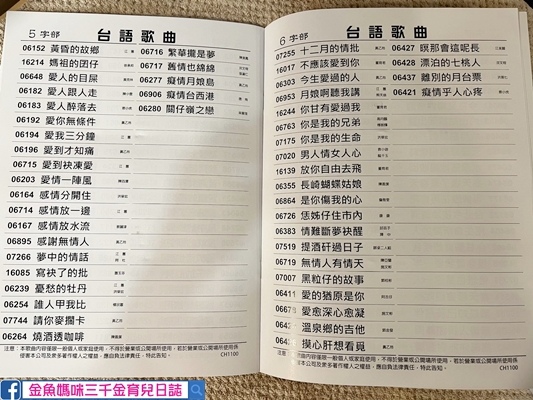 5 字部 台語歌曲
06152 黃昏的故鄉
16214 媽祖的囝仔
06648 愛人的目屎
06182 愛人跟人走
06183 愛人醉落去
06192 愛你無條件
06194 愛我三分鐘
06196 愛到才知痛
06715 愛到袂凍愛
06203 愛情一陣風
06164 感情分開住
06714 感情放一邊
06167 感情放水流
06895 感謝無情人
07266 夢中的情話
16085 寫袂了的批
06239 憂愁的牡丹
06254 誰人甲我比
07744 請你麥擱卡
06264 燒酒透咖啡
06716 繁華攏是夢
06717 舊情也綿綿
06277 癡情月娘島
06906 癡情台西港
06280 關仔嶺之戀
注意：本歌曲內容僅限一般個人或家庭使用，若於營業或公開場所使用係
侵害本公司及眾多著作權人之權益，應自負法律責任，特此告知。
CH1100
6 字部 台語歌曲
07255 十二月的情批
16017 不應該愛到你
06303 今生愛過的人
06953 月娘啊聽我講
16244 你甘有愛過我
06763 你是我的兄弟
07175 你是我的生命
07020 男人情女人心
16139 放你自由去飛
06355 長崎蝴蝶姑娘
06864 是你傷我的心
06726 恁姊仔住市內
06383 情難斷夢袂醒
07519 提酒矸過日子
06719 無情人有情天
07007 黑粒仔的故事
06411 愛的猶原是你
愛愈深心愈凝
溫泉鄉的吉他
摸心肝想看覓
06427 暝那會這呢長
06428 漂泊的七桃人
06437 離別的月台票
06421 癡情乎人心疼
注意：本歌曲內容僅限一般個人或家庭使用，若於營業或公開場所使用
係侵害本公司及眾多著作權人之權益，應自負法律責任，特此告知。
CH1100
金魚媽咪三千金育兒日誌